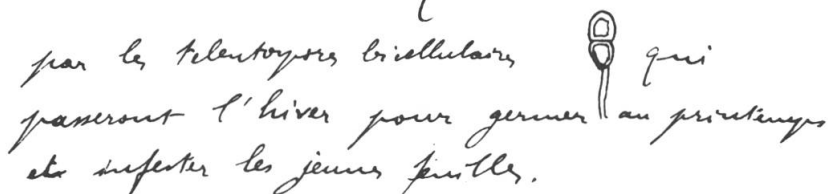 par les téleutospores bicellulaires qui
passeront l'hiver pour germer au printemps
et infester les jeunes feuilles.